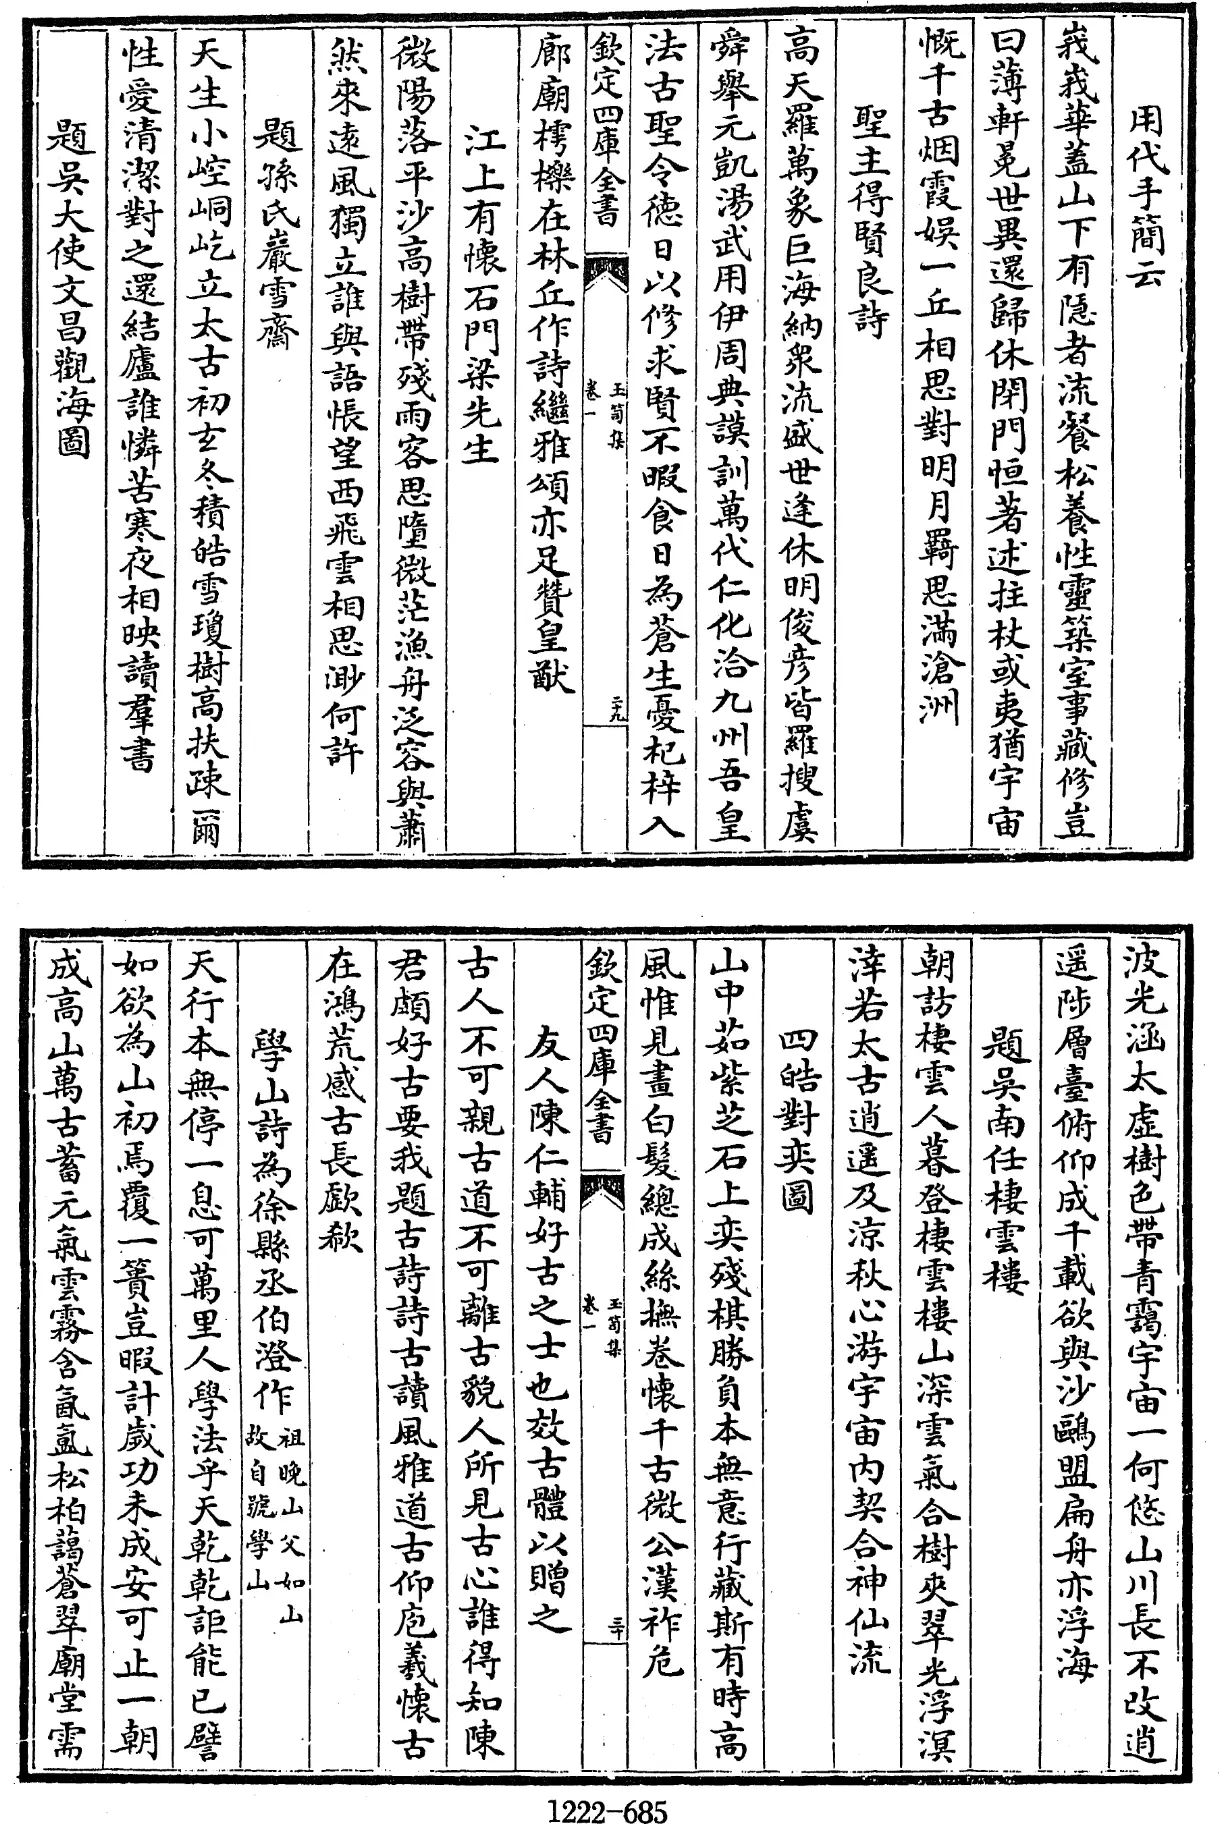 用代手簡云
峩峩華蓋山下有隱者流餐松養性靈築室事藏修豈
曰薄軒冕世異還歸休閉門恒著述拄杖或夷猶宇宙
慨千古烟霞娛一丘相思對明月羇思滿滄洲
聖主得賢良詩
高天羅萬象巨海納衆流盛世逢休明俊彦皆羅搜虞
舜舉元凱湯武用伊周典謨訓萬代仁化洽九州吾皇
法古聖令徳日以修求賢不暇食日為蒼生憂杞梓入
欽定四庫全書
玉笥集
卷一
二十九
廊廟樗櫟在林丘作詩繼雅頌亦足贊皇猷
江上有懷石門梁先生
微陽落平沙高樹帶殘雨客思墮微茫漁舟泛容與蕭
然來遠風獨立誰與語悵望西飛雲相思渺何許
題孫氏巖雪齋
天生小崆峒屹立太古初玄冬積皓雪瓊樹高扶疎爾
性愛清潔對之還結廬誰憐苦寒夜相映讀羣書
題吳大使文昌觀海圖
波光涵太虛樹色帶青靄宇宙一何悠山川長不改逍
遥陟層臺俯仰成千載欲與沙鷗盟扁舟亦浮海
題吳南任棲雲樓
朝訪棲雲人暮登棲雲樓山深雲氣合樹夾翠光浮溟
涬若太古逍遥及涼秋心游宇宙内契合神仙流
四皓對奕圖
山中茹紫芝石上奕殘棋勝負本無意行藏斯有時高
風惟見畫白髮總成絲撫卷懷千古微公漢祚危
欽定四庫全書
玉笥集
卷一
三十
友人陳仁輔好古之士也效古體以贈之
古人不可親古道不可離古貌人所見古心誰得知陳
君頗好古要我題古詩詩古讀風雅道古仰庖羲懷古
在鴻荒感古長歔欷
學山詩為徐縣丞伯澄作祖晚山父如山
故自號學山
天行本無停一息可萬里人學法乎天乾乾詎能已譬
如欲為山初焉覆一簣豈暇計歲功未成安可止一朝
成高山萬古蓄元氣雲霧含氤氳松柏藹蒼翠廟堂需
1222-685